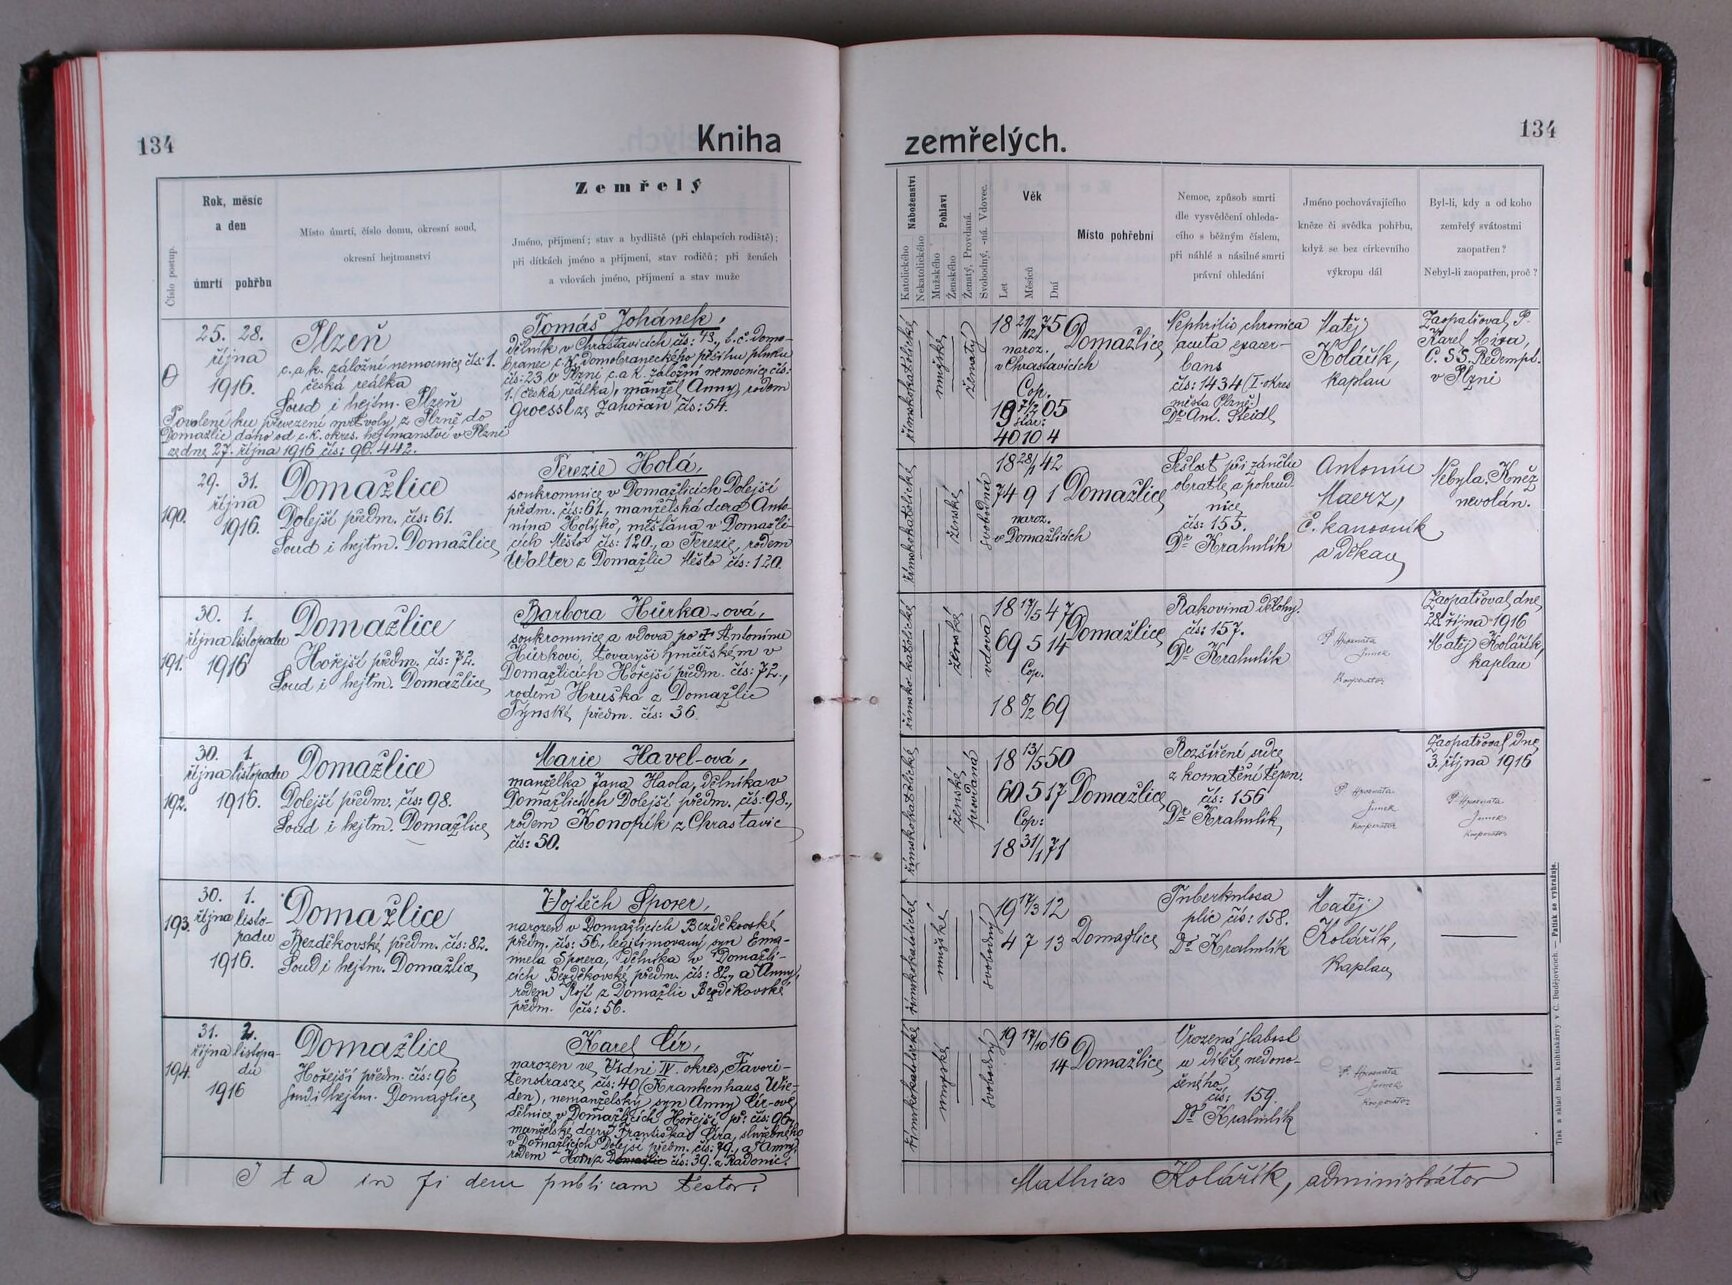 134
Kniha
zemřelých.
134
Číslo postup.
Rok, měsíc
a den
úmrtí pohřbu
Místo úmrtí, číslo domu, okresní soud,
okresní hejtmanství
Zemřelý
Jméno, příjmení; stav a bydliště (při chlapcích rodiště);
při dítkách jméno a příjmení, stav rodičů; při ženách
a vdovách jméno, příjmení a stav muže
Náboženství
Katolického
Nekatolického
Pohlaví
Mužského
Ženského
Ženatý, Provdaná.
Svobodný, -ná. Vdovec.
Věk
Let
Měsíců
Dní
Místo pohřební
Nemoc, způsob smrti
dle vysvědčení ohleda-
cího s běžným číslem,
při náhlé a násilné smrti
právní ohledání
Jméno pochovávajícího
kněze či svědka pohřbu,
když se bez církevního
výkropu dál
Byl-li, kdy a od koho
zemřelý svátostmi
zaopatřen?
Nebyl-li zaopatřen, proč?
25. 28.
října
1916.
Plzeň
c. a k. záložní nemocnice čís: 1.
česká reálka
Soud i hejtm. Plzeň
Povolení ku převezení mrtvoly z Plzně do
Domažlic, dáno od c. k. okres. hejtmanství v Plzni
ze dne 27. října 1916 čís: 96.442.
Tomáš Johánek,
dělník v Chrastavicích čís: 73, t. č. domo-
branec c. k. domobraneckého pěšího pluku
čís: 23 v Plzni c. a k. záložní nemocnice čís:
1. (česká reálka), manžel Anny, rodem
Groessl ze Zahořan čís: 54.
římskokatolické
mužské
ženatý
18 21/12 75
naroz.
v Chrastavicích
Cop.
19 05
Stár:
40 10 4
Domažlice
Nephritis chronica
acuta exacer-
bans
čís: 1434 (I. okres
města Plzně.)
Dr Ant. Steidl
Matěj
Kolářík,
kaplan
Zaopatřoval P.
Karel Mira,
C. SS. Redempt.
v Plzni
190.
29. 31.
října
1916.
Domažlice
Dolejší předm. čís: 61.
Soud i hejtm. Domažlice
Terezie Holá,
soukromnice v Domažlicích Dolejší
předm. čís: 61, manželská dcera Anto-
nína Holého, měšťana v Domažli-
cích Město čís: 120, a Terezie, rodem
Walter z Domažlic Město čís: 120.
římskokatolické
ženské
svobodná
18 28/1 42
74 9 1
naroz.
v Domažlicích
Domažlice
Sešlost při zánětu
obratle a pohrud
nice
čís: 155.
Dr Krahulík
Antonín
Maerz,
č. kanovník
a děkan
Nebyla. Kněz
nevolán.
191.
30. 1.
října listopadu
1916
Domažlice
Hořejší předm. čís: 72.
Soud i hejtm. Domažlice
Barbora Hůrka-ová,
soukromnice a vdova po † Antonínu
Hůrkovi, tovaryši hrnčířském v
Domažlicích Hořejší předm. čís: 72.,
rodem Hruška z Domažlic
Týnské předm. čís: 36.
římsko-katolické
ženské
vdova
18 17/5 47
69 5 14
Cop.
18 8/2 69
Domažlice
Rakovina dělohy.
čís: 157.
Dr Krahulík
P. Hroznata
Junek
kooperator
Zaopatřoval dne
28. října 1916
Matěj Kolářík,
kaplan
192.
30. 1.
října listopadu
1916.
Domažlice
Dolejší předm. čís: 98.
Soud i hejtm. Domažlice
Marie Havel-ová,
manželka Jana Havla, dělníka v
Domažlicích Dolejší předm. čís: 98.,
rodem Konopík z Chrastavic
čís: 50.
římskokatolické
ženské
provdaná
18 13/5 50
60 5 17
Cop:
18 31/1 71
Domažlice
Rozšíření srdce
z kornatění tepen.
čís: 156
Dr Krahulík
P. Hroznata
Junek
kooperator
Zaopatřoval dne
3. října 1916
P. Hroznata
Junek
kooperator
193.
30. 1.
října listo-
padu
1916.
Domažlice
Bezděkovské předm. čís: 82.
Soud i hejtm. Domažlice
Vojtěch Sporer,
narozen v Domažlicích Bezděkovské
předm. čís: 56, legitimovaný syn Ema-
nuela Sporera, dělníka v Domažli-
cích Bezděkovské předm. čís: 82, a Anny,
rodem Rojt z Domažlic Bezděkovské
předm. čís: 56.
římskokatolické
mužské
svobodný
19 17/3 12
4 7 13
Domažlice
Tuberkulosa
plic čís: 158.
Dr Krahulík
Matěj
Kolářík,
kaplan
194.
31. 2.
října listopa-
du
1916
Domažlice
Hořejší předm. čís: 96
Soud i hejtm. Domažlice
Karel Cír,
narozen ve Vídni IV. okres, Favori-
tenstrasze čís: 40 (Krankenhaus Wie-
den), nemanželský syn Anny Cír-ové
dělnice v Domažlicích Hořejší př: čís: 96,
manželské dcery Františka Círa, služebného
v Domažlicích Dolejší předm. čís: 79, a Anny,
rodem z Domažlic čís: 39. z Radonic.
římskokatolické
mužské
svobodný
19 17/10 16
14
Domažlice
Vrozená slabost
u dítěte nedono-
šeného
čís: 159.
Dr Krahulík
P. Hroznata
Junek
kooperator
Ita in fidem publicam testor:
Mathias Kolářík, administrátor
Tisk a sklad hosk. knihtiskárny v Č. Budějovicích. — Patisk se vyhražuje.